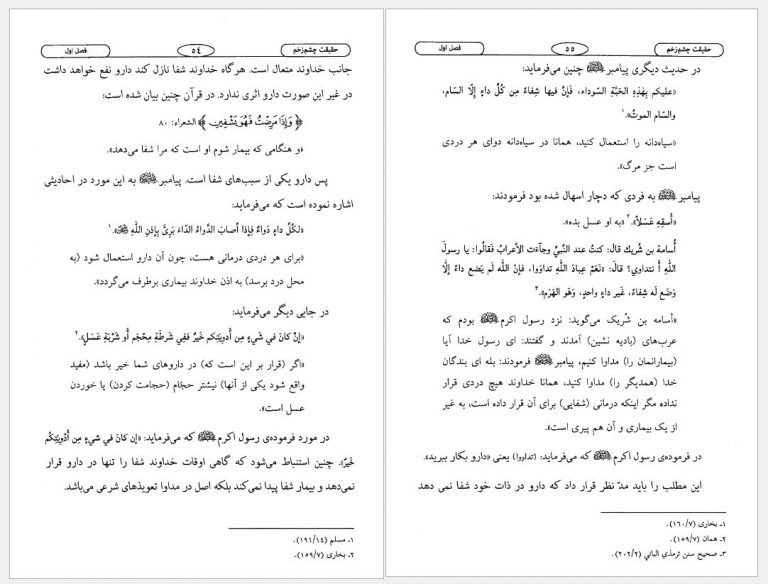 حقیقت چشم‌زخم
٥٤
فصل اول
جانب خداوند متعال است. هرگاه خداوند شفا نازل کند دارو نفع خواهد داشت
در غیر این صورت دارو اثری ندارد. در قرآن چنین بیان شده است:
﴿وَإِذَا مَرِضْتُ فَهُوَ يَشْفِينِ﴾ الشعراء: ٨٠
«و هنگامی که بیمار شوم او است که مرا شفا می‌دهد».
پس دارو یکی از سبب‌های شفا است. پیامبر ﷺ به این مورد در احادیثی
اشاره نموده است که می‌فرماید:
«لکُلِّ داءٍ دَواءٌ فَإذا أصابَ الدَّواءُ الدّاءَ بَرِئَ بِإذنِ اللهِ ﷻ».١
«برای هر دردی درمانی هست، چون آن دارو استعمال شود (به
محل درد برسد) به اذن خداوند بیماری برطرف می‌گردد».
در جایی دیگر می‌فرماید:
«إن كانَ في شَيءٍ مِن أَدوِيَتِكم خَيرٌ فَفِي شَرطَةِ مِحْجَمٍ أو شَرْبَةِ عَسَلٍ».٢
«اگر (قرار بر این است که) در داروهای شما خیر باشد (مفید
واقع شود یکی از آنها) نیشتر حجّام (حجامت کردن) یا خوردن
عسل است».
در مورد فرموده‌ی رسول اکرم ﷺ که می‌فرماید: «إن كانَ في شيءٍ مِن أَدْوِيَتِكُم
خَيرٌ». چنین استنباط می‌شود که گاهی اوقات خداوند شفا را تنها در دارو قرار
نمی‌دهد و بیمار شفا پیدا نمی‌کند بلکه اصل در مداوا تعویذهای شرعی می‌باشد.
١ـ مسلم (١٩١/١٤).
٢ـ بخاری (١٥٩/٧).
حقیقت چشم‌زخم
٥٥
فصل اول
در حدیث دیگری پیامبر ﷺ چنین می‌فرماید:
«علیکم بِهَذِهِ الحَبَّةِ السّوداء، فَإنَّ فیها شِفاءً مِن كُلِّ داءٍ إلّا السّام،
والسّام الموتُ».١
«سیاه‌دانه را استعمال کنید، همانا در سیاه‌دانه دوای هر دردی
است جز مرگ».
پیامبر ﷺ به فردی که دچار اسهال شده بود فرمودند:
«أَسقِهِ عَسَلاً».٢ «به او عسل بده».
أُسامة بن شُریك قالَ: کنتُ عند النَّبيِّ وجآءَت الأعرابُ فَقالُوا: یا رسولَ
اللهِ أَ نتداوي؟ قالَ: «نَعَمْ عِبادَ اللهِ تَداوَوا، فَإنّ الله لَم يَضع داءً إلّا
وَضَع لَه شِفاءً، غَیرَ داءٍ واحدٍ، وَهُوَ الهَرَم».٣
«أسامه بن شُریک می‌گوید: نزد رسول اکرم ﷺ بودم که
عرب‌های (بادیه نشین) آمدند و گفتند: ای رسول خدا آیا
(بیمارانمان را) مداوا کنیم، پیامبر ﷺ فرمودند: بله ای بندگان
خدا (همدیگر را) مداوا کنید، همانا خداوند هیچ دردی قرار
نداده مگر اینکه درمانی (شفایی) برای آن قرار داده است، به غیر
از یک بیماری و آن هم پیری است».
در فرموده‌ی رسول اکرم ﷺ که می‌فرماید: (تداووا) یعنی «دارو بکار ببرید».
این مطلب را باید مدّ نظر قرار داد که دارو در ذات خود شفا نمی دهد
١ـ بخاری (١٦٠/٧).
٢ـ همان (١٥٩/٧).
٣ـ صحیح سنن ترمذي الباني (٢٠٢/٢).